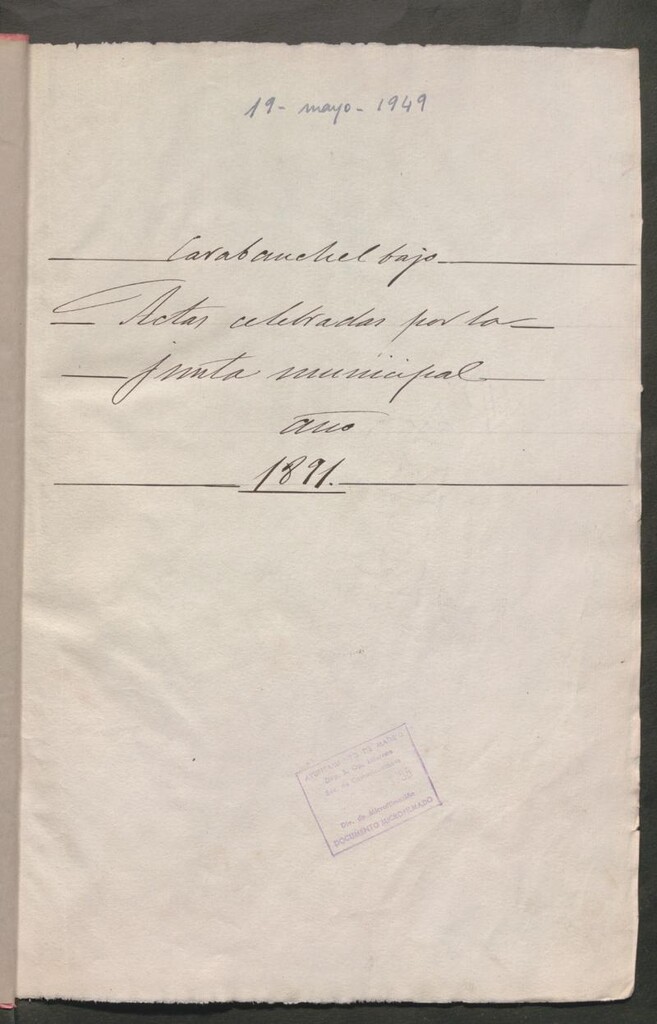 19 - mayo - 1949
Carabanchel bajo
Actas celebradas por la
junta municipal
año
1891.
AYUNTAMIENTO DE MADRID
Div. de Microfilmación
DOCUMENTO MICROFILMADO